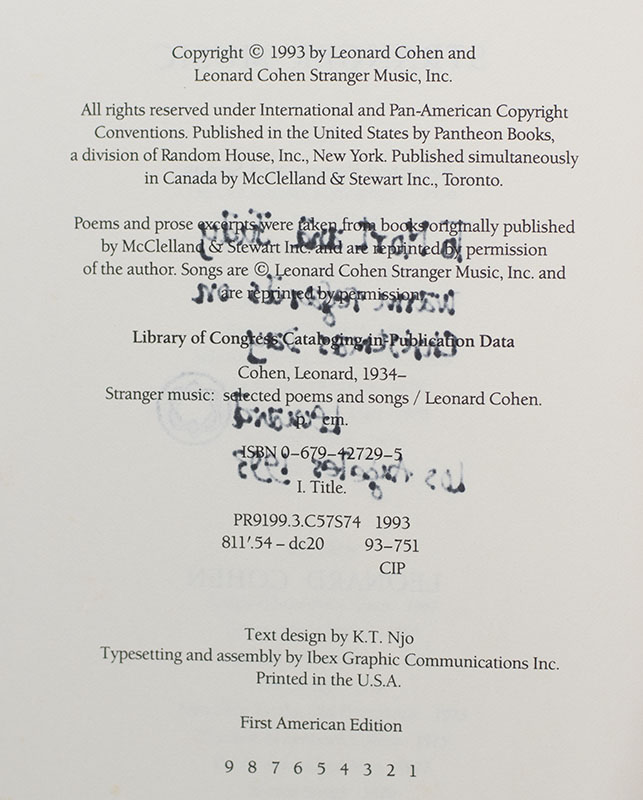 Copyright © 1993 by Leonard Cohen and
Leonard Cohen Stranger Music, Inc.
All rights reserved under International and Pan-American Copyright
Conventions. Published in the United States by Pantheon Books,
a division of Random House, Inc., New York. Published simultaneously
in Canada by McClelland & Stewart Inc., Toronto.
Poems and prose excerpts were taken from books originally published
by McClelland & Stewart Inc. and are reprinted by permission
of the author. Songs are © Leonard Cohen Stranger Music, Inc. and
are reprinted by permission.
Library of Congress Cataloging-in-Publication Data
Cohen, Leonard, 1934–
Stranger music: selected poems and songs / Leonard Cohen.
p. em.
ISBN 0–679–42729–5
I. Title.
PR9199.3.C57S74 1993
811′.54 – dc20 93–751
CIP
Text design by K.T. Njo
Typesetting and assembly by Ibex Graphic Communications Inc.
Printed in the U.S.A.
First American Edition
9 8 7 6 5 4 3 2 1
warm regards on
Christmas Day
Leonard
Los Angeles 1993
LEONARD COHEN